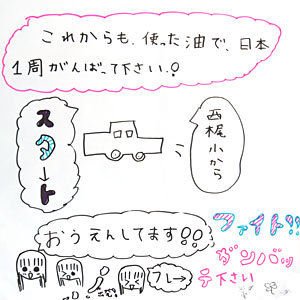 これからも、使った油で、日本
1周がんばって下さい!
スタート
西梶小から
おうえんしてます!!
ファイト!!
ガンバッ
テ下さい
フレー